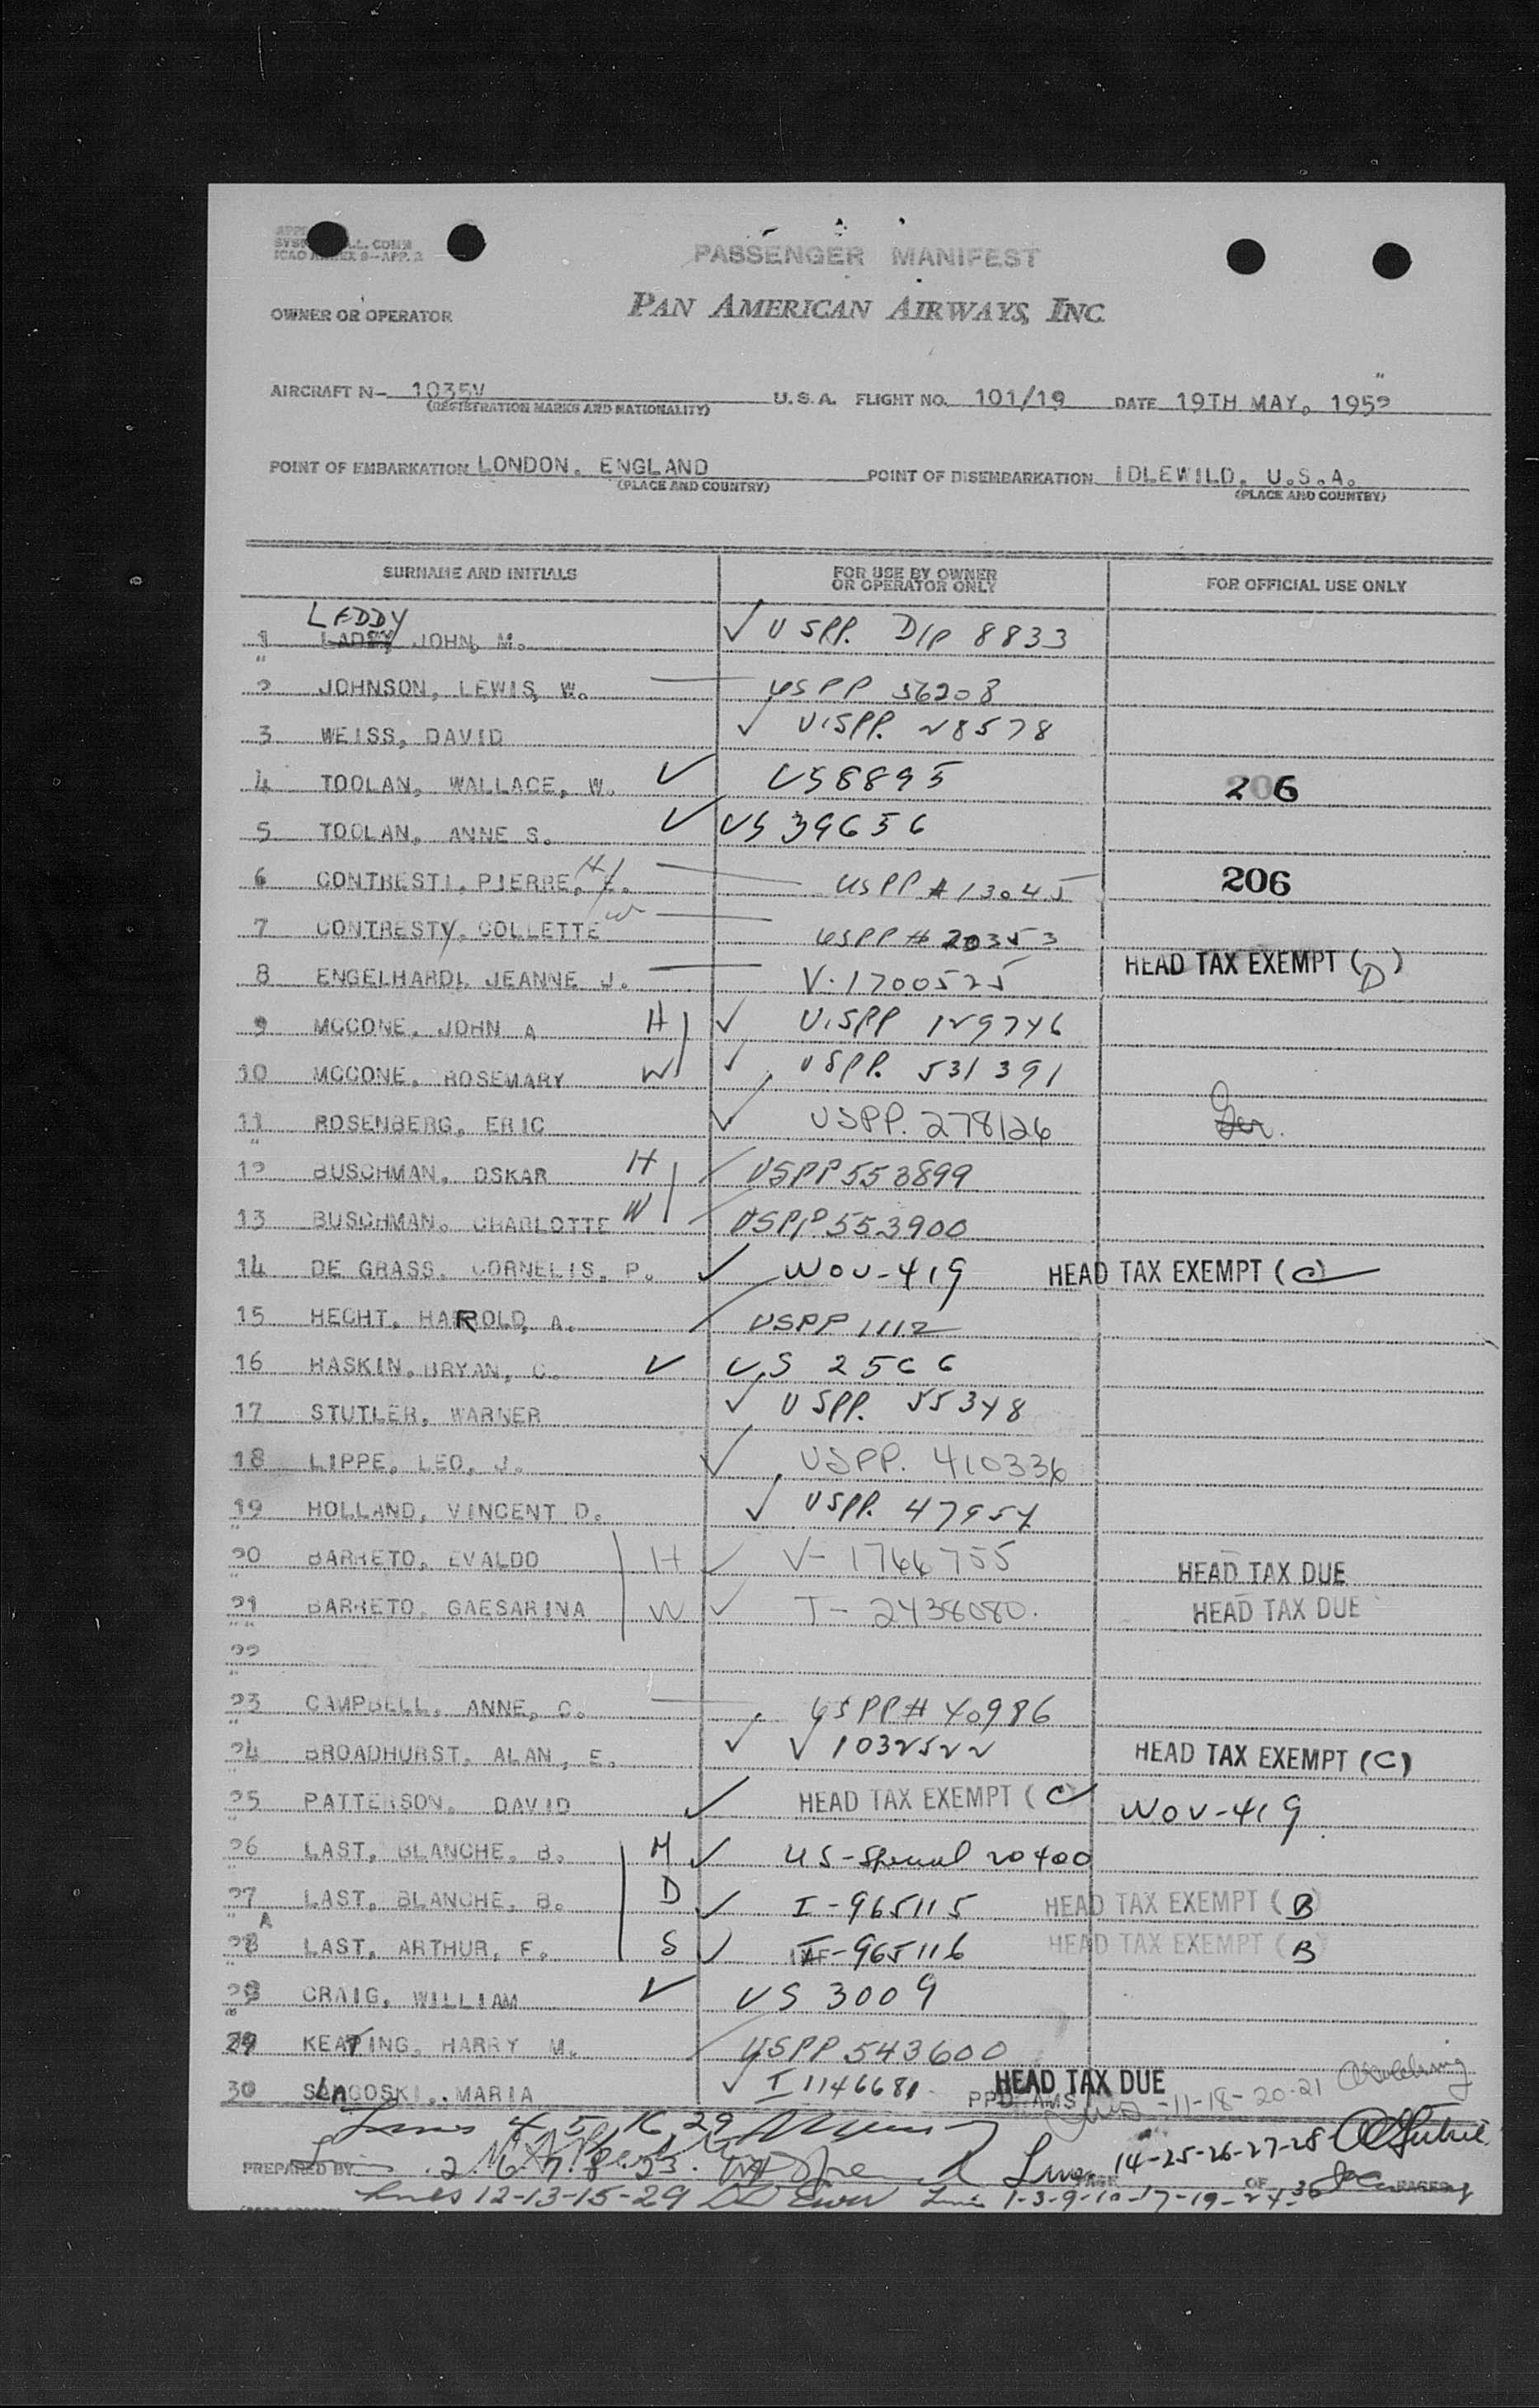 ICAO ANNEX 9—APP. 3
PASSENGER MANIFEST
OWNER OR OPERATOR PAN AMERICAN AIRWAYS, INC.
AIRCRAFT N- 1035V U.S.A. FLIGHT NO. 101/19 DATE 19TH MAY, 1952
(REGISTRATION MARKS AND NATIONALITY)
POINT OF EMBARKATION LONDON, ENGLAND POINT OF DISEMBARKATION IDLEWILD, U.S.A.
(PLACE AND COUNTRY) (PLACE AND COUNTRY)
SURNAME AND INITIALS FOR USE BY OWNER OR OPERATOR ONLY FOR OFFICIAL USE ONLY
LEDDY
1 LADEY JOHN, M. ✓ USPP. Dip 8833
2 JOHNSON, LEWIS, W. — USPP 56208
3 WEISS, DAVID ✓ USPP. 28578
4 TOOLAN, WALLACE, W. ✓ US8895 206
5 TOOLAN, ANNE S. ✓ US 39656
6 CONTRESTI, PIERRE, H — USPP #13045 206
7 CONTRESTY, COLLETTE W — USPP # 20353
8 ENGELHARDI, JEANNE J. — V-1700525 HEAD TAX EXEMPT (D)
9 MCCONE, JOHN A H ✓ USPP 129746
10 MCCONE, ROSEMARY W ✓ USPP. 531391
11 ROSENBERG, ERIC ✓ USPP. 278126 Ger.
12 BUSCHMAN, OSKAR H USPP 553899
13 BUSCHMAN, CHARLOTTE W USPP 553900
14 DE GRASS, CORNELIS, P. ✓ WOV-419 HEAD TAX EXEMPT (C)
15 HECHT, HARROLD, A. USPP 1112
16 HASKIN, BRYAN, C. ✓ US 2566
17 STUTLER, WARNER ✓ USPP. 55348
18 LIPPE, LEO, J. ✓ USPP. 410336
19 HOLLAND, VINCENT D. ✓ USPP. 47954
20 BARRETO, EVALDO H ✓ V-1766755 HEAD TAX DUE
21 BARRETO, GAESARINA W ✓ T-2438080. HEAD TAX DUE
22
23 CAMPBELL, ANNE, C. — USPP# 40986
24 BROADHURST, ALAN, E. ✓ V 1032522 HEAD TAX EXEMPT (C)
25 PATTERSON, DAVID ✓ HEAD TAX EXEMPT (C) WOV-419
26 LAST, BLANCHE, B. M ✓ US-Special 20400
27 LAST, BLANCHE, B. D ✓ I-965115 HEAD TAX EXEMPT (B)
28 A LAST, ARTHUR, F. S ✓ I-965116 HEAD TAX EXEMPT (B)
28 CRAIG, WILLIAM ✓ US 3009
29 KEATING, HARRY M. USPP 543600
30 MARIA ✓ I 1146681 HEAD TAX DUE
PPD AMS -11-18-20-21
Lines 4 5 16 29
PREPARED BY 2. 6. 7. 8. 23. Lines 14-25-26-27-28
Lines 12-13-15-29 Lines 1-3-9-10-17-19-24-30 PAGE OF PAGES